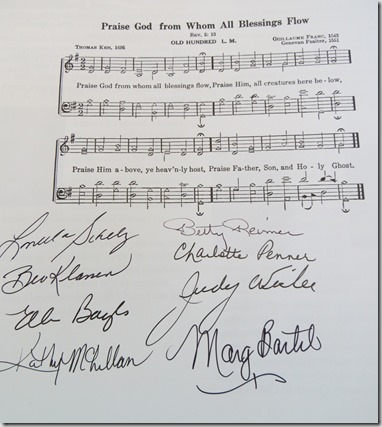 Praise God from Whom All Blessings Flow
Rev. 5: 13
THOMAS KEN, 1695
OLD HUNDRED L. M.
GUILLAUME FRANC, 1543
Genevan Psalter, 1551
Praise God from whom all blessings flow, Praise Him, all creatures here be- low,
Praise Him a- bove, ye heav'n-ly host, Praise Fa-ther, Son, and Ho- ly Ghost.
Betty Reimer
Bev Klassen
Charlotte Penner
Judy
Kathy McMillan
Marg Bartel